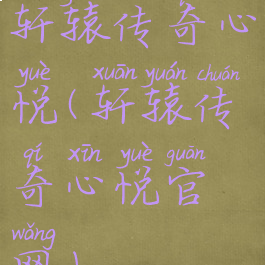 轩辕传奇心
yuè xuān yuán chuán
悦(轩辕传
qí xīn yuè guān
奇心悦官
wǎng
网)